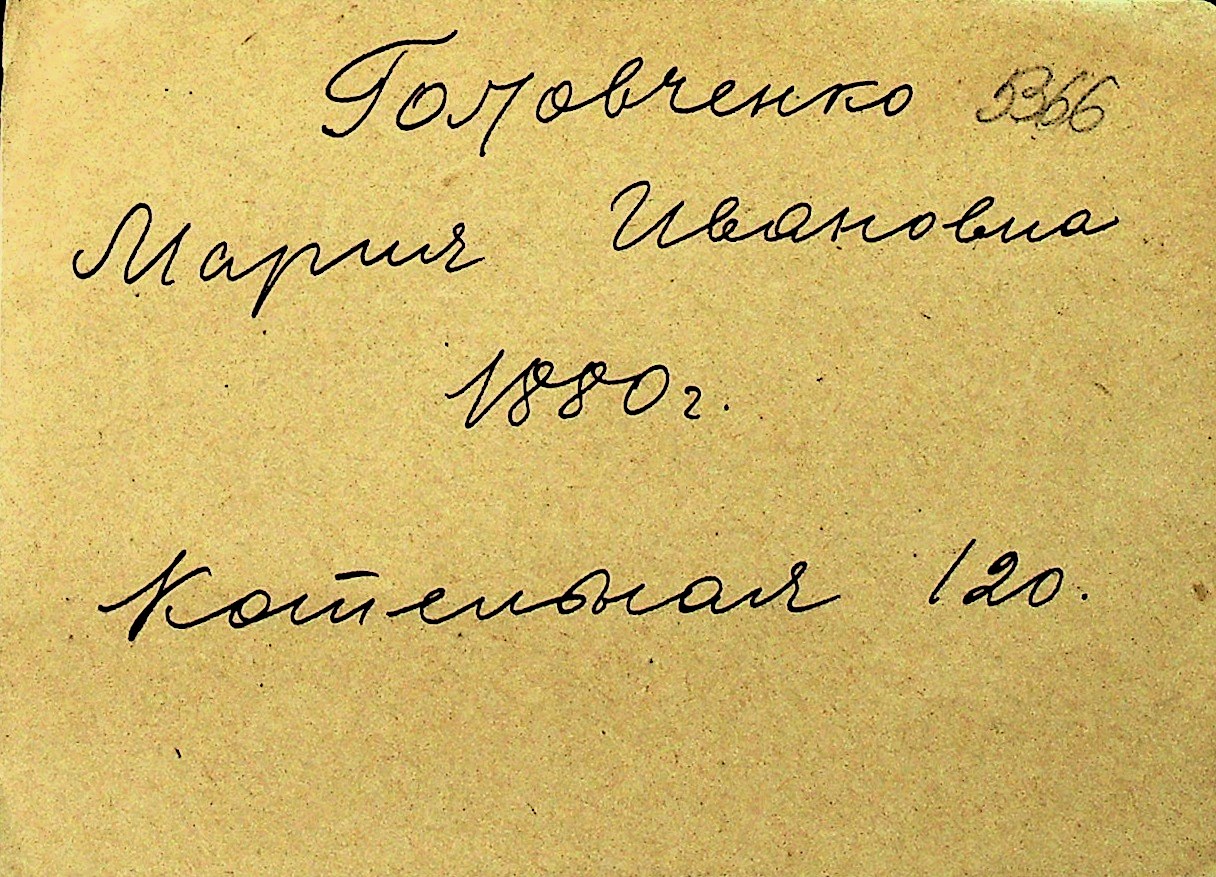 Головченко 5366
Мария Ивановна
1880г.
Котельная 120.